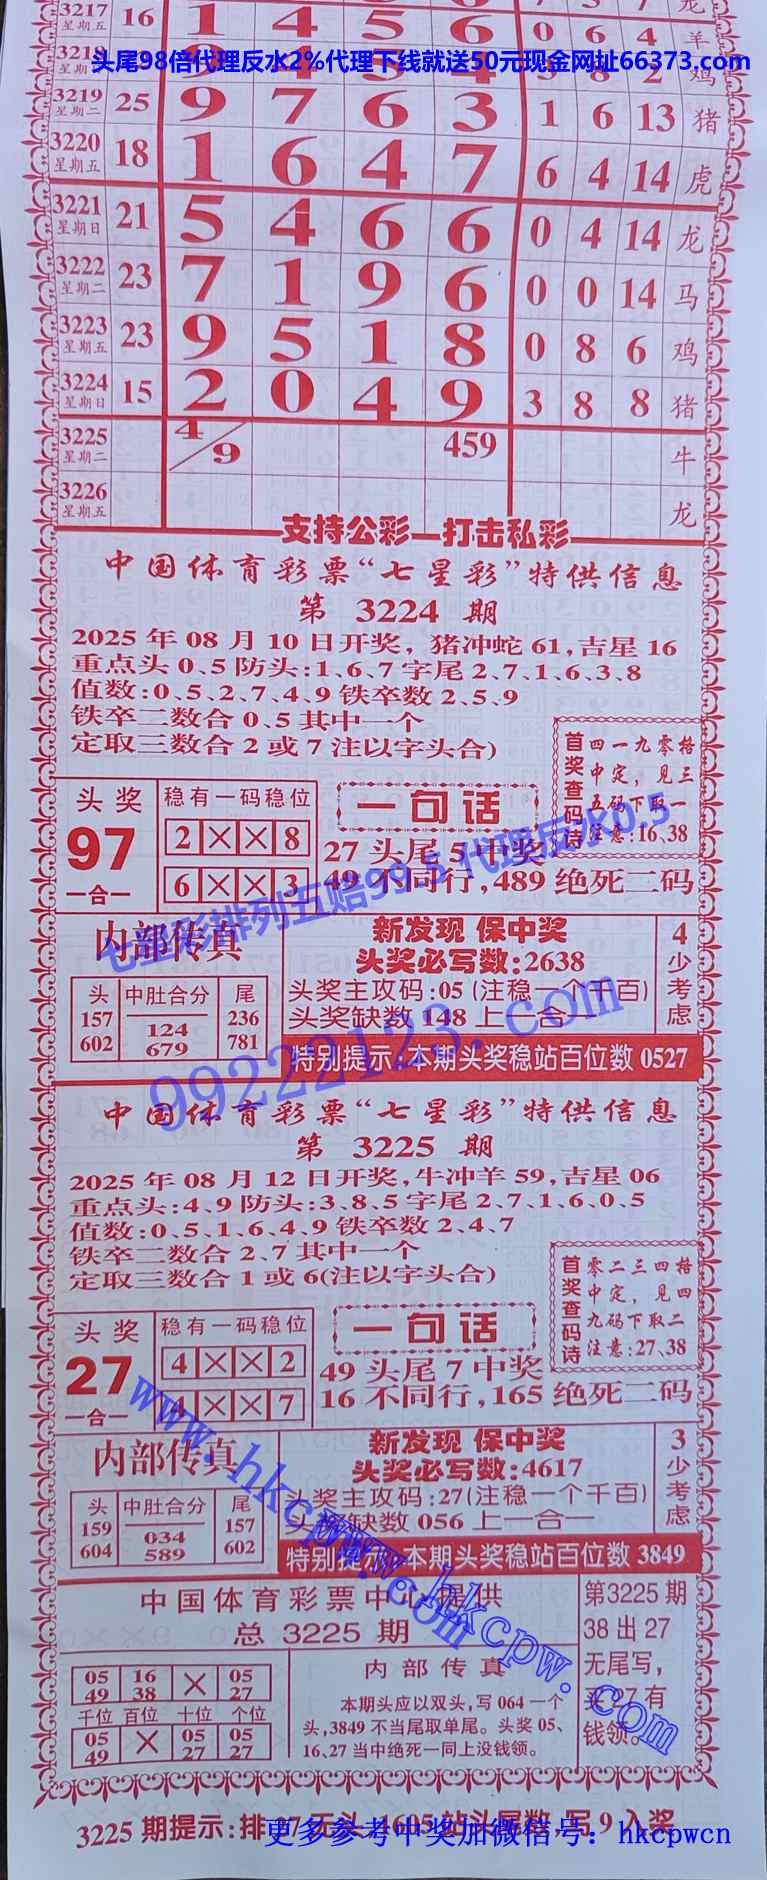 3217 星期五 16 1 4 5 6 0 6 4 羊
头尾98倍代理反水2%代理下线就送50元现金网址66373.com
3218 鸡
3219 星期二 25 9 7 6 3 1 6 13 猪
3220 星期五 18 1 6 4 7 6 4 14 虎
3221 星期日 21 5 4 6 6 0 4 14 龙
3222 星期二 23 7 1 9 6 0 0 14 马
3223 星期五 23 9 5 1 8 0 8 6 鸡
3224 星期日 15 2 0 4 9 3 8 8 猪
3225 星期二 4/9 459 牛
3226 星期五 龙
支持公彩—打击私彩
中国体育彩票“七星彩”特供信息
第 3224 期
2025年08月10日开奖，猪冲蛇61,吉星16
重点头0、5防头:1、6、7字尾2、7、1、6、3、8
值数:0、5、2、7、4、9铁卒数2、5、9
铁卒二数合0、5其中一个
定取三数合2或7注以字头合)
首奖查码诗
四一九零格
中定，见三
五码下取一
注意:16、38
头奖
97
一合一
稳有一码稳位
2××8
6××3
一句话
27头尾5中奖
49不同行,489绝死二码
七星彩排列五赔99.5 代理反水0.5
内部传真
头 中肚合分 尾
157 124 236
602 679 781
新发现 保中奖
头奖必写数:2638
头奖主攻码:05(注稳一个千百)
头奖缺数148上一合一
4少考虑
特别提示:本期头奖稳站百位数0527
99222123.com
中国体育彩票“七星彩”特供信息
第 3225 期
2025年08月12日开奖,牛冲羊59,吉星06
重点头:4、9防头:3、8、5字尾2、7、1、6、0、5
值数:0、5、1、6、4、9铁卒数2、4、7
铁卒二数合2、7其中一个
定取三数合1或6(注以字头合)
首奖查码诗
零二三四格
中定，见四
九码下取二
注意:27、38
头奖
27
一合一
稳有一码稳位
4××2
4××7
一句话
49头尾7中奖
16不同行,165绝死二码
www.hkcpw.com
内部传真
头 中肚合分 尾
159 034 157
604 589 602
新发现 保中奖
头奖必写数:4617
头奖主攻码:27(注稳一个千百)
头奖缺数056上一合一
3少考虑
特别提示:本期头奖稳站百位数3849
www.hkcpw.com
中国体育彩票中心提供
总3225期
05 16 × 05
49 38 27
千位 百位 十位 个位
05 × 05 05
49 27 27
内部传真
本期头应以双头,写064一个
头,3849不当尾取单尾。头奖05、
16、27当中绝死一同上没钱领。
第3225期
38出27
无尾写,
头27有
钱领。
3225期提示:排27无头,1605站头尾数,写9入奖
更多参考中奖加微信号：hkcpwcn